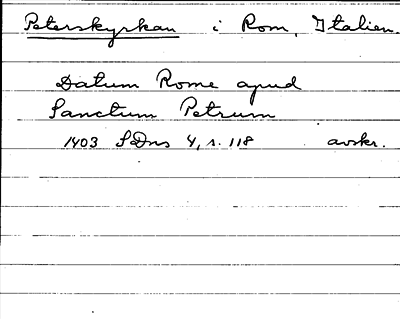 Peterskyrkan i Rom, Italien.
Datum Rome apud
Sanctum Petrum
1403 SDns 4, s. 118 avskr.